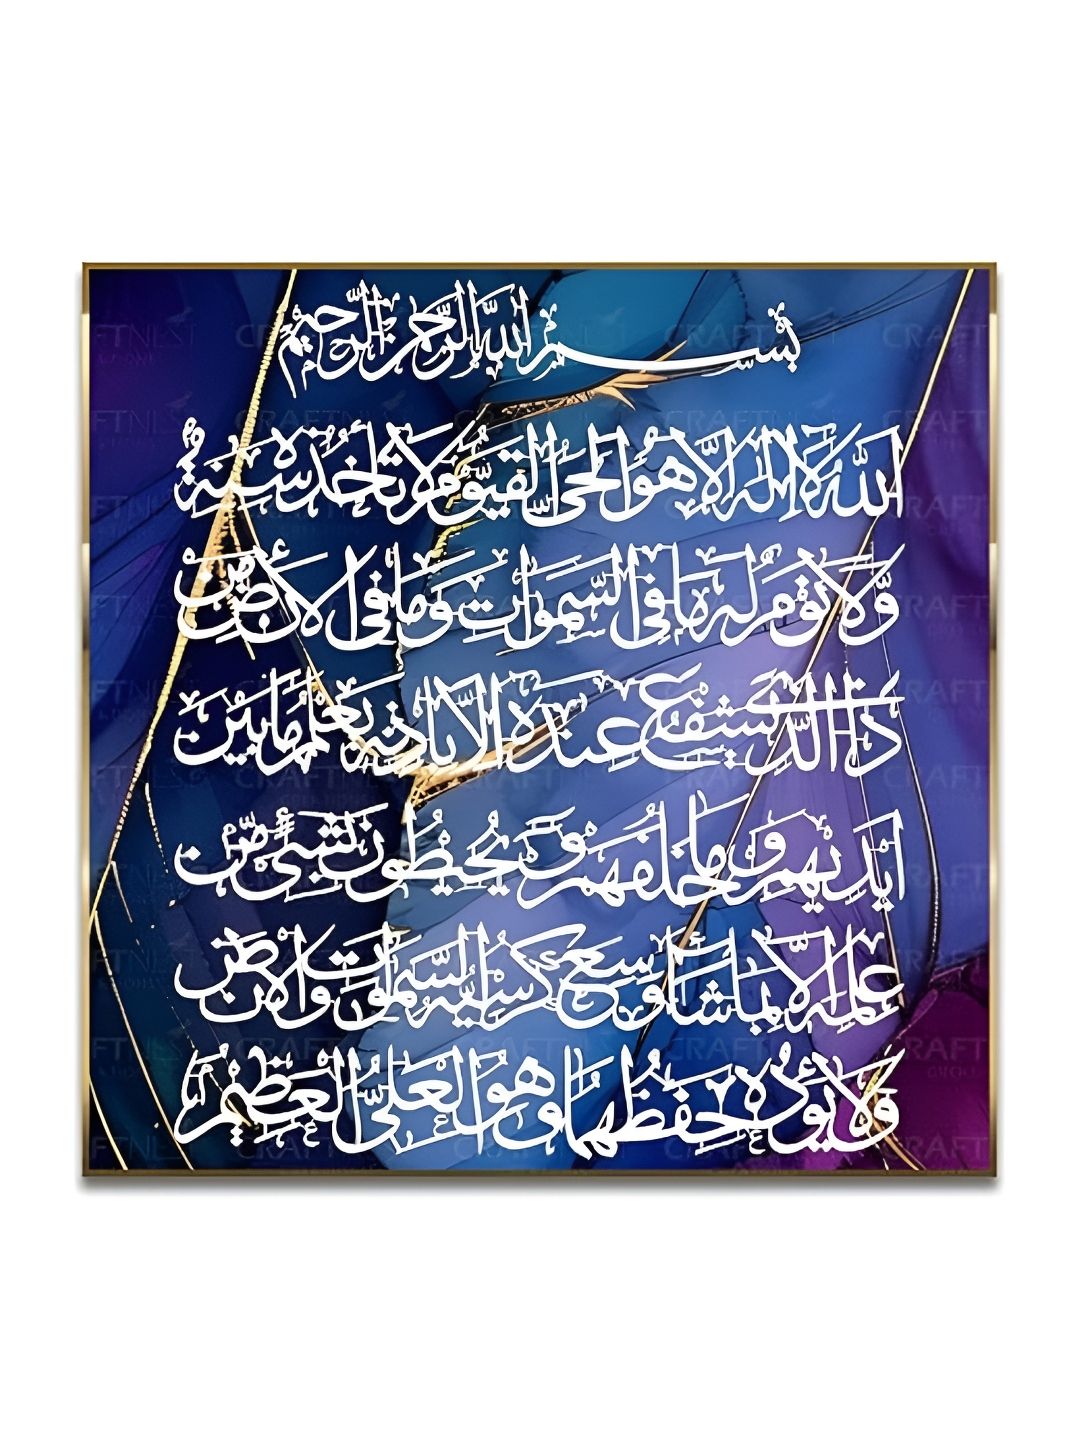 بسم الله الرحمن الرحيم
اللهُ لا اله الا هو الحي القيوم لا تأخذه سنة
ولا نوم له ما في السموات وما في الأرض
ذا الذي يشفع عنده الا باذنه يعلم ما بين
ايديهم وما خلفهم ولا يحيطون بشيء من
علمه الا بما شاء وسع كرسيه السموات والارض
ولا يؤده حفظهما وهو العلي العظيم